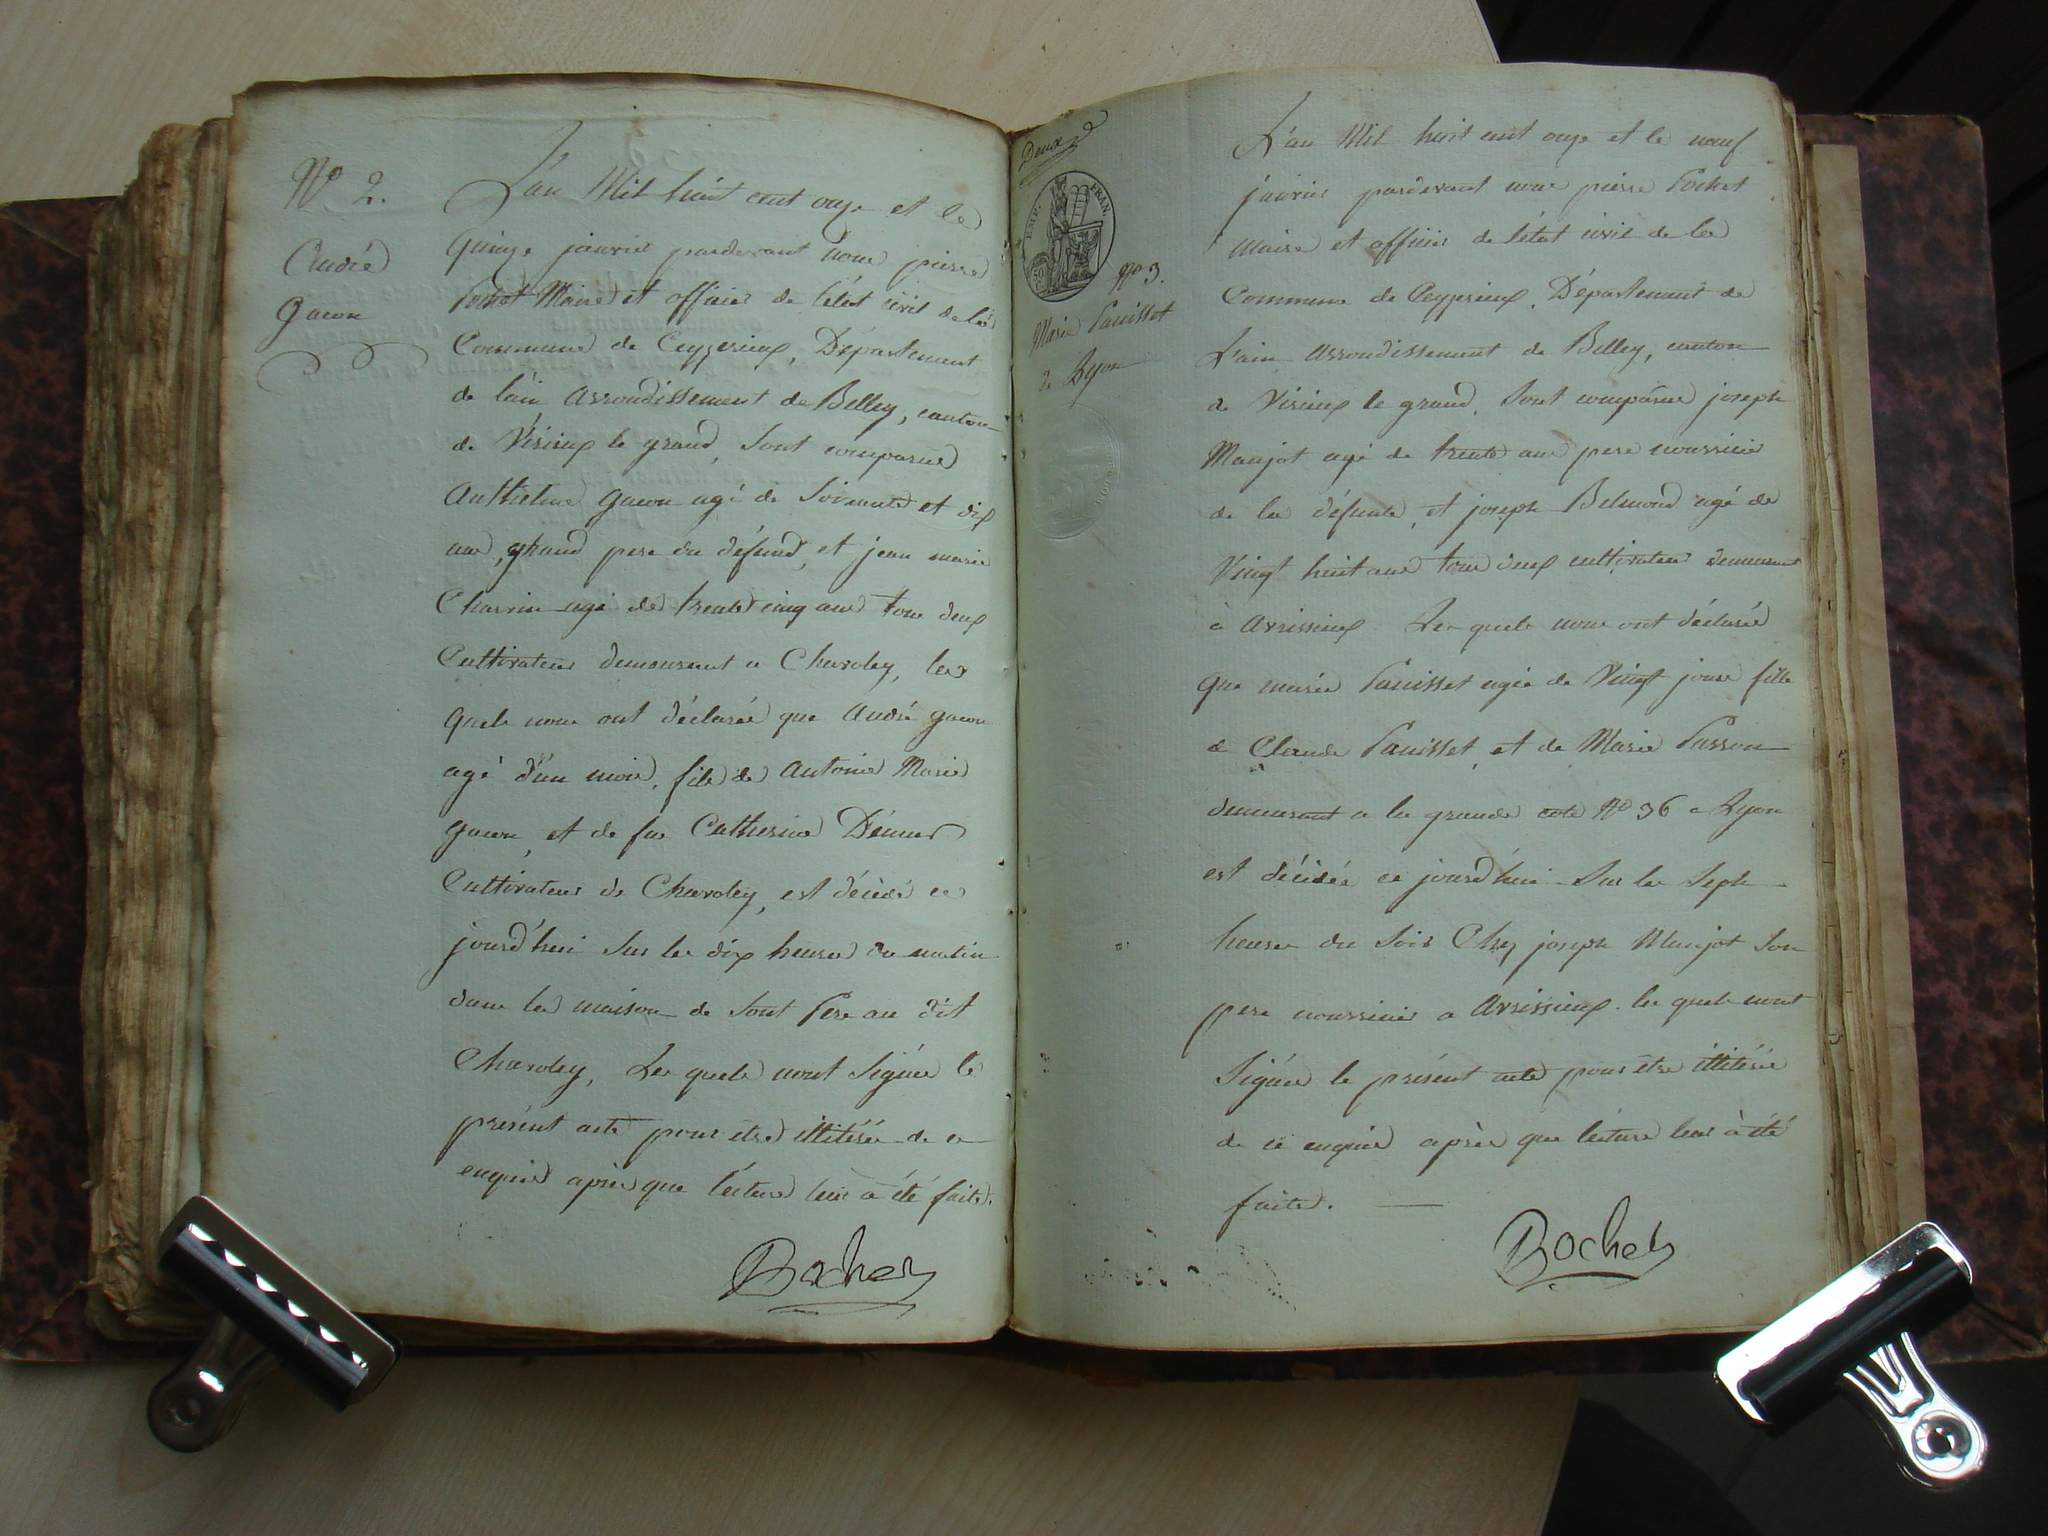 N° 2.
André
gacon
L'an Mil huit cent onze et le
quinze janvier pardevant nous pierre
Pochet Maire et officier de l'état civil de la
Commune de Ceyzerieux, Département
de l'ain arrondissement de Belley, canton
de Virieux le grand, Sont comparus
Anthelme gacon agé de Soixante et dix
ans, grand pere du défund, et jean marie
Charvin agé de trente cinq ans tous deux
Cultivateurs demeurant a Charoley, les
quels nous ont déclarée que André gacon
agé d'un mois, fils de Antoine Marie
gacon, et de fue Catherine
Cultivateur de Charoley, est décédé ce
jourd'hui Sur les dix heures du matin
dans la maison de Sont Pere au dit
Charoley, Les quels nont Signée le
présent acte pour être illitérée de ce
enquis après que lecture leur a été faite.
Bochet
Deux
EMP. FRAN.
50
N° 3.
Marie Pauisset
de Lyon
L'an Mil huit cent onze et le neuf
janvier pardevant nous pierre Pochet
Maire et officier de l'état civil de la
Commune de Ceyzerieux, Département de
L'ain arrondissement de Belley, canton
de Virieux le grand, Sont comparus joseph
Maujot agé de trente ans pere nourricier
de la défunte, et joseph Belmond agé de
Vingt huit ans tous deux cultivateurs demeurant
à Avrissieux. Les quels nous ont déclarée
que marie Pauisset agée de Vingt jours fille
de Claude Pauisset, et de Marie Passon
demeurant a la grande cote N° 36 a Lyon
est décédée ce jourd'hui Sur les Sept
heures du Soir Chez joseph Maujot Son
pere nourricier a Avrissieux. les quels nont
Signée le présent acte pour être illitérée
de ce enquis après que lecture leur à été
faite.
Bochet